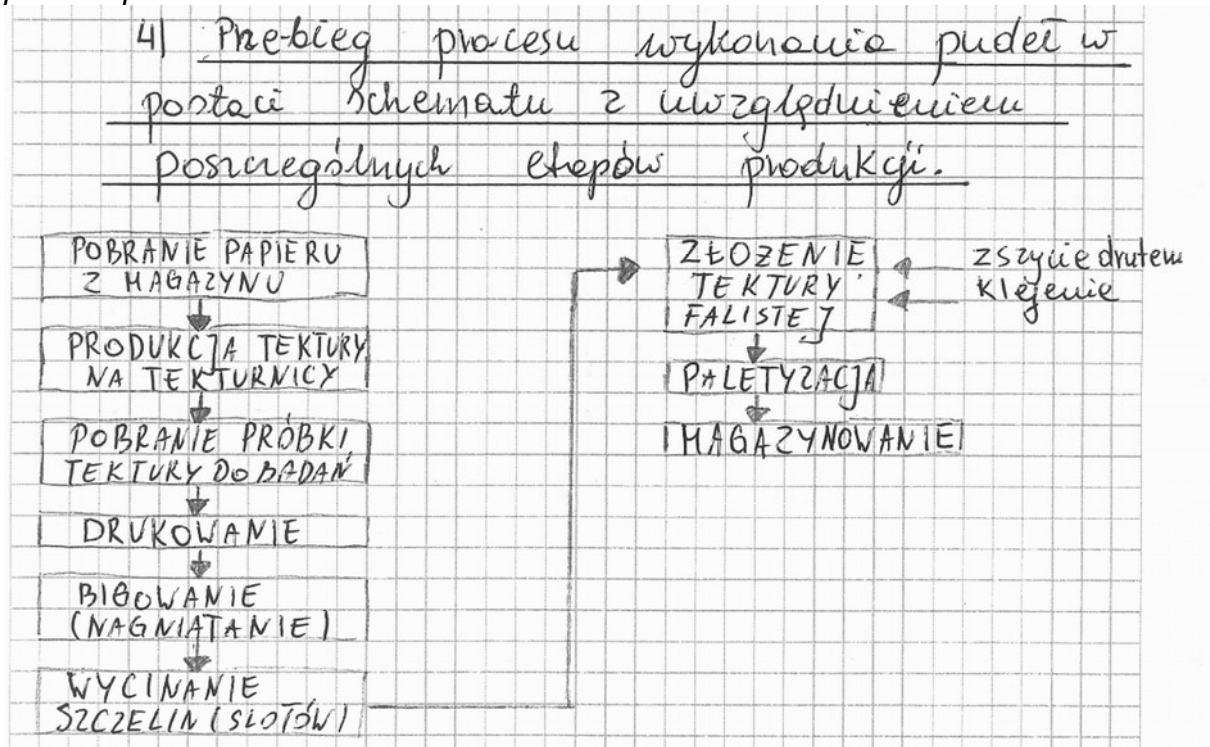 4) Przebieg procesu wykonania pudeł w
postaci schematu z uwzględnieniem
poszczególnych etapów produkcji.
POBRANIE PAPIERU
Z MAGAZYNU
PRODUKCJA TEKTURY
NA TEKTURNICY
POBRANIE PRÓBKI
TEKTURY DO BADAŃ
DRUKOWANIE
BIGOWANIE
(NAGNIATANIE)
WYCINANIE
SZCZELIN (SLOTÓW)
ZŁOŻENIE
TEKTURY
FALISTEJ
zszycie drutem
klejenie
PALETYZACJA
MAGAZYNOWANIE